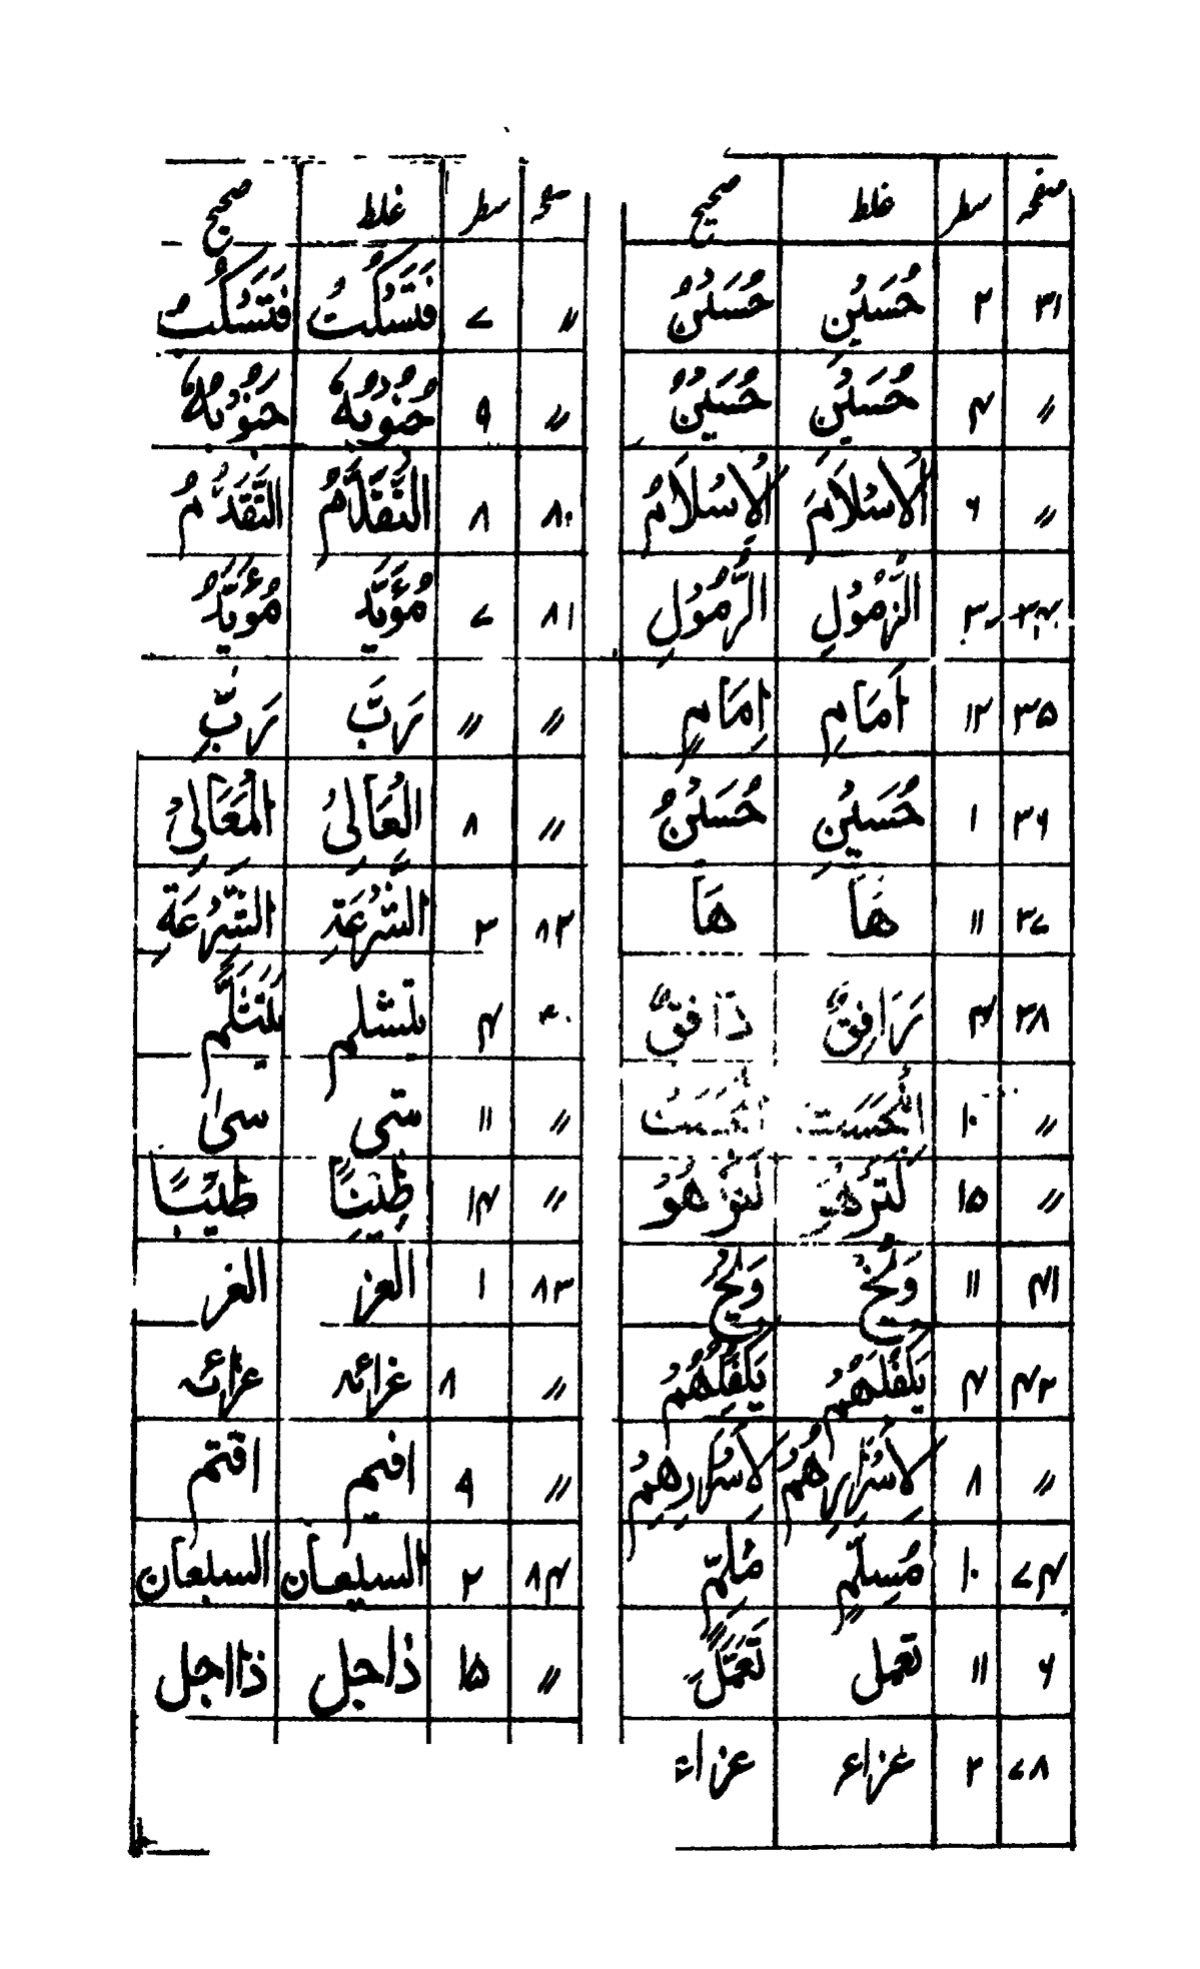 صفحہ سطر غلط صحیح
۳۱ ۲ حُسَیْنِ حُسَیْنٌ
〃 ۴ حُسَیْنَ حُسَیْنٌ
〃 ۶ اَلْاِسْلَامَ اَلْاِسْلَامُ
۳ الرَّسُوْلِ الرَّسُوْلِ
۳۵ ۱۲ اَمَامِ اِمَامٍ
۳۶ ۱ حُسَیْنِ حُسَیْنٌ
۳۷ ۱۱ هَاَ هَا
۳۸ ۴ رَافِقٌ دَافِقٌ
〃 ۱۰
〃 ۱۵
۴۱ ۱۱
۴۲ ۴ یَکْفُلَهُمْ یَکْفُلُهُمْ
〃 ۸ لِاَسْرَارِهُمْ لِاَسْرَارِهِمْ
۴۷ ۱۰ مُسْلِمٍ مُلِمٍّ
۶ ۱۱ تعمل تَعَمُّلٍ
۷۸ ۲ غزاء عزاء
صفحہ سطر غلط صحیح
〃 ۷ فَتَسَکَّتُ فَتَسَکَّتْ
〃 ۹ جُنُوْبُهٗ جَنُوْبُهٗ
۸۰ ۸ التَّقَدَّمُ التَّقَدُّمُ
۸۱ ۷ مُؤَیَّدَ مُؤَیِّدُ
〃 〃 رَبَّ رَبِّ
〃 ۸ الْعَالِیْ الْمَعَالِیْ
۸۲ ۳ الشَّرْعَةِ الشِّرْعَةِ
۴ یتسلم یَتَثَلَّم
〃 ۱۱ ستی سری
〃 ۱۴ طِیْنًا طَیِّبًا
۸۳ ۱ العز الغر
〃 ۸ غرائه عزائه
〃 ۹ افیم اقتم
۸۴ ۲ السلیعان السلعان
〃 ۱۵ ذاجل ذااجل